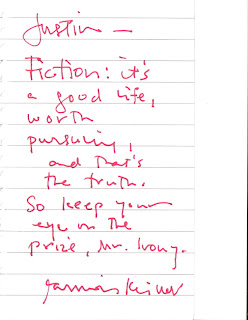 Justin —
Fiction: it's
a good life,
worth
pursuing,
and that's
the truth.
So keep your
eye on the
prize, Mr. Ivony.